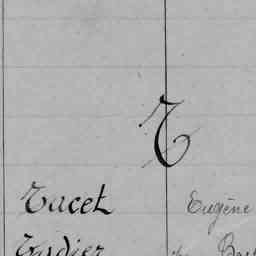 T
Tacet Eugène
Tardier